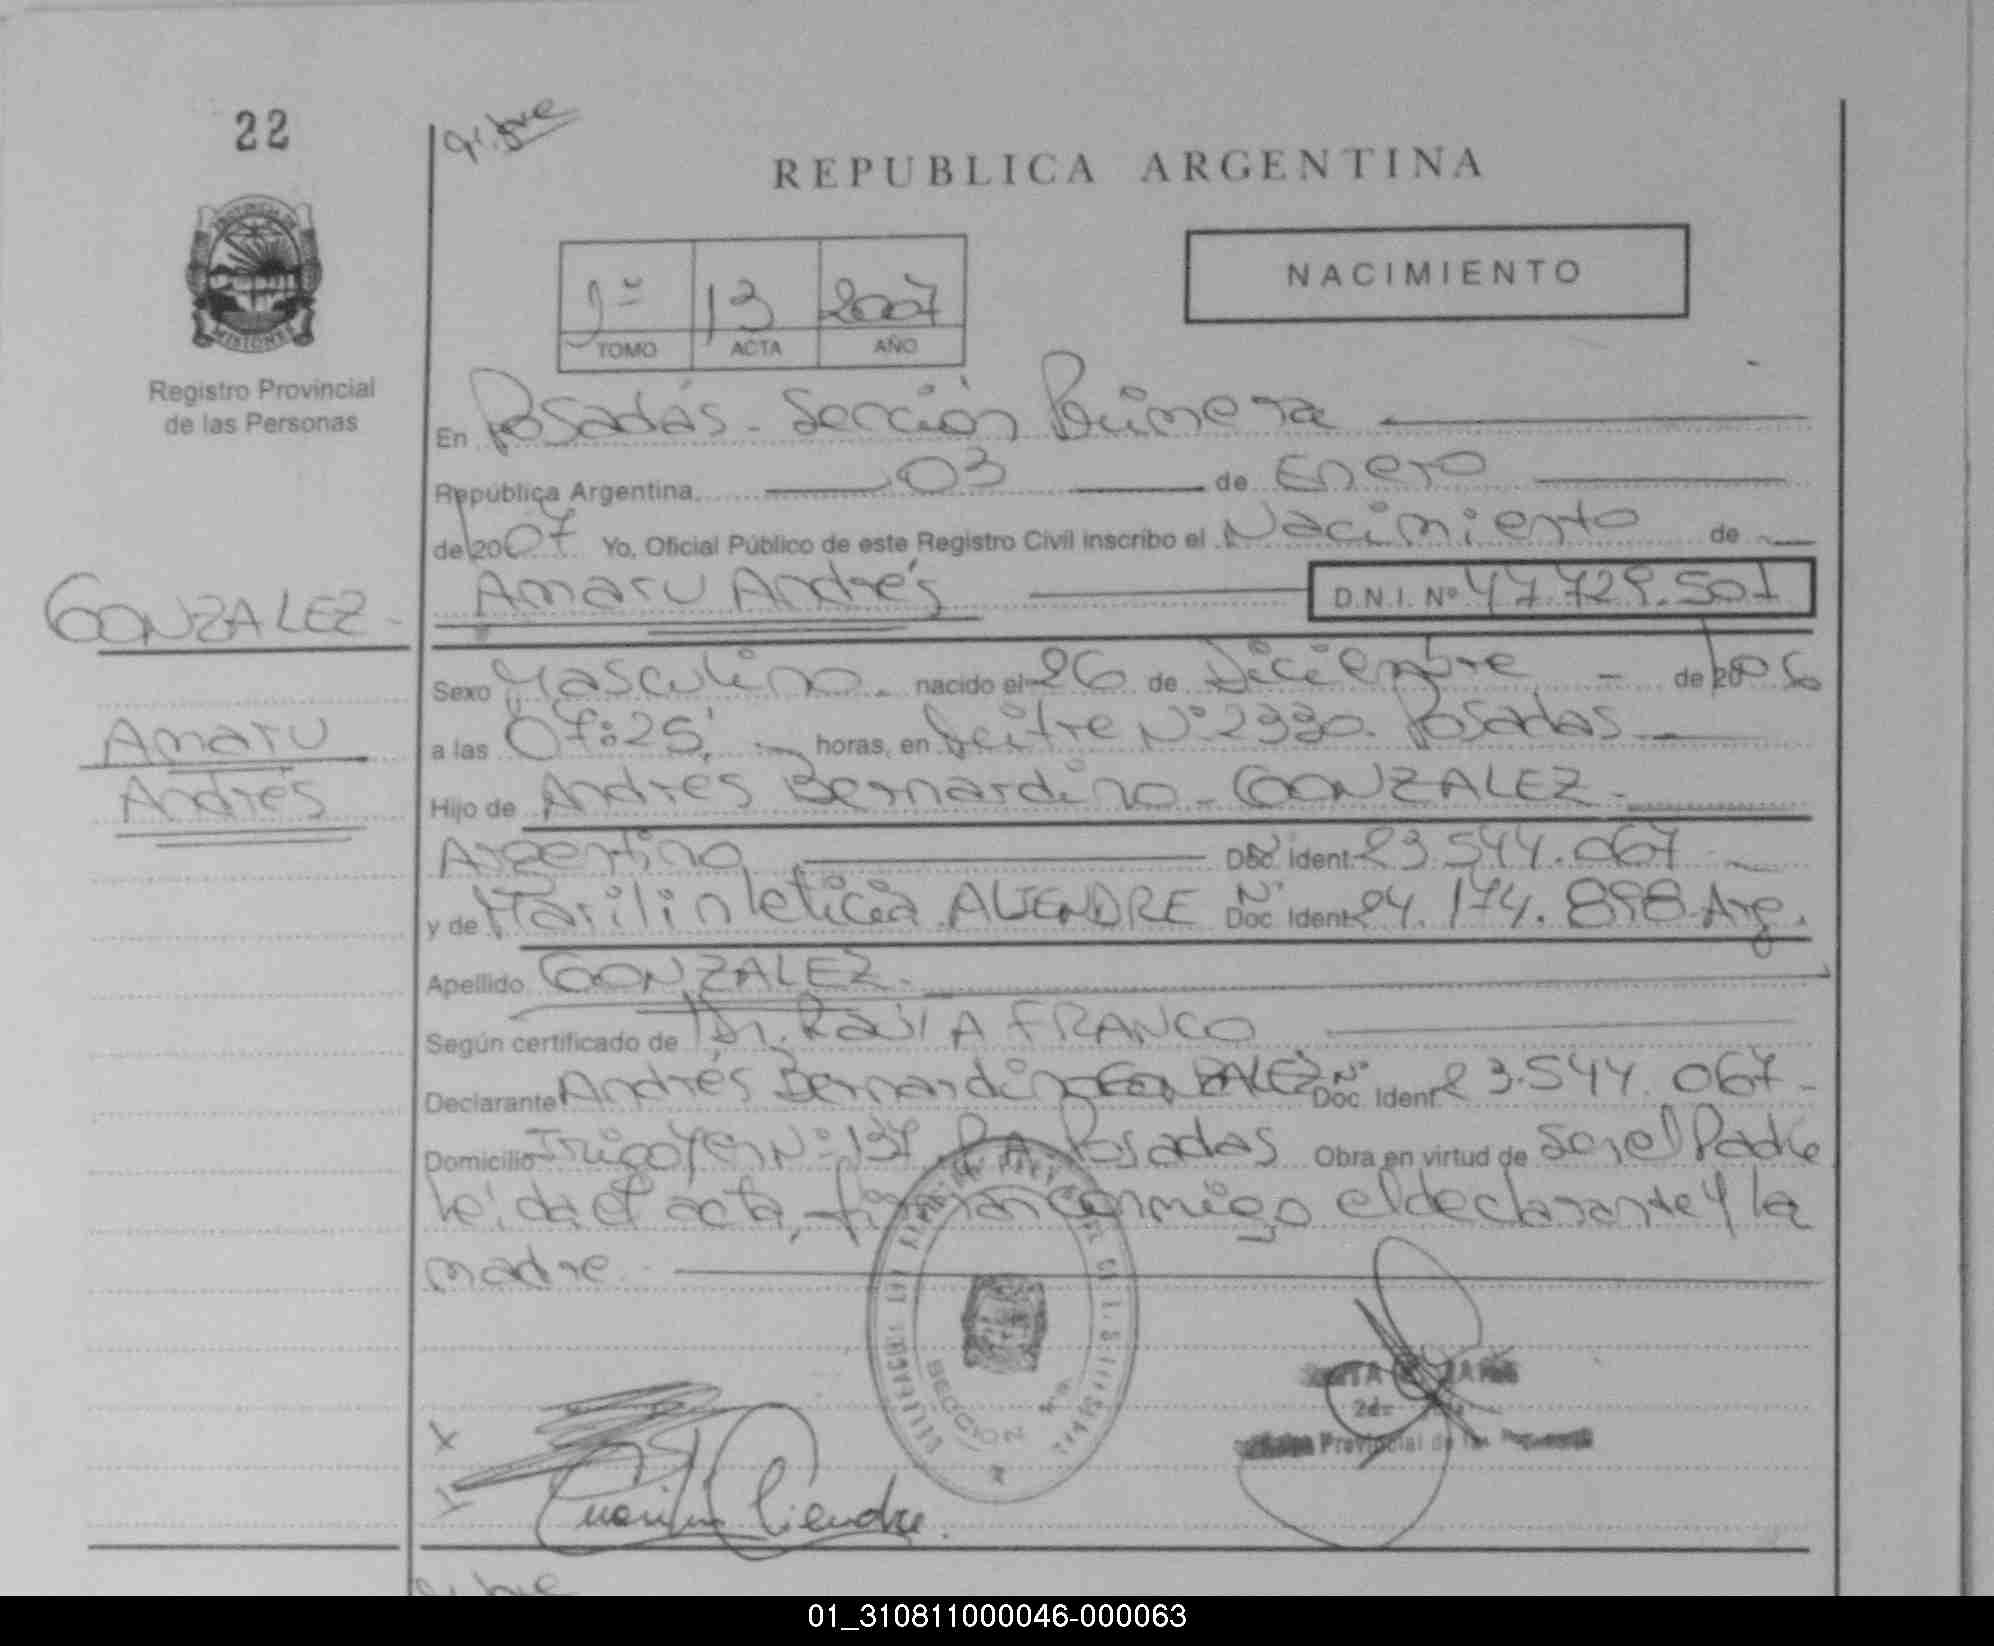 22
REPUBLICA ARGENTINA
PROVINCIA DE
MISIONES
Registro Provincial
de las Personas
1º 13 2007
TOMO ACTA AÑO
NACIMIENTO
En Posadas - Sección Primera
República Argentina 03 de Enero
de 2007 Yo, Oficial Público de este Registro Civil inscribo el Nacimiento de
GONZALEZ - Amaru Andrés D.N.I. Nº 47.729.501
Sexo Masculino - nacido el 26 de Diciembre - de 2006
Amaru
Andrés
a las 07:25' horas, en Nº 2330. Posadas
Hijo de Andrés Bernardino - GONZALEZ -
Argentino Doc. Ident. Nº 23.544.067
y de Marilin leticia ALIENDRE Doc. Ident. Nº 24.174.898 - Arg.
Apellido GONZALEZ -
Según certificado de Dr. Raúl A FRANCO
Declarante Andrés Bernardino GONZALEZ Doc. Ident. Nº 23.544.067 -
Domicilio Irigoyen Nº 137 Posadas Obra en virtud de Ser el Padre
leida el acta, firman conmigo el declarante y la
madre
SECCION
Provincial de las
01_310811000046-000063